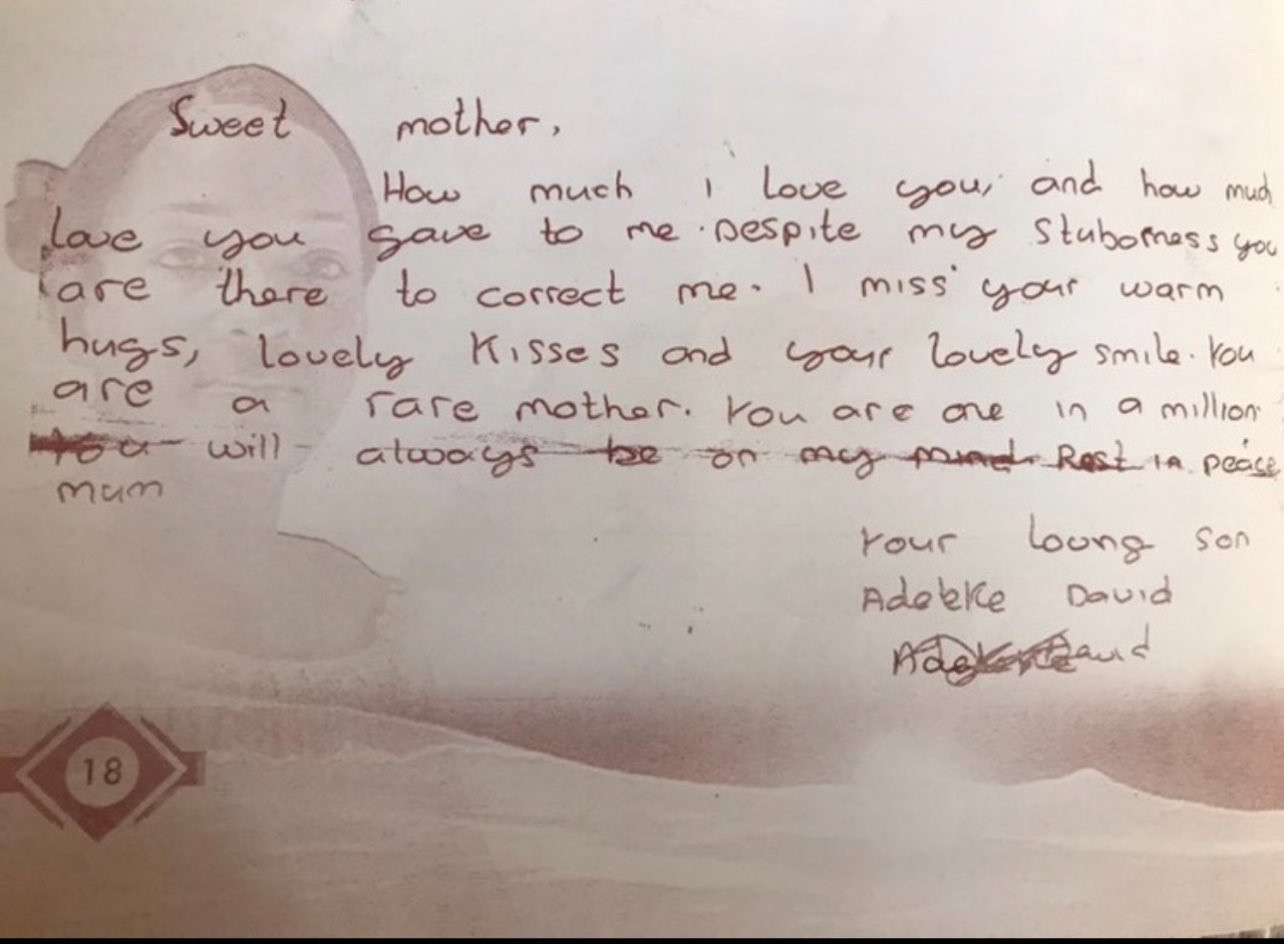 Sweet mother,
How much I love you, and how much
love you gave to me. Despite my Stuborness you
are there to correct me. I miss your warm
hugs, lovely Kisses and your lovely smile. You
are a rare mother. You are one in a million
You will always be on my mind. Rest in peace
mum
Your loving son
Adeleke David
David
18